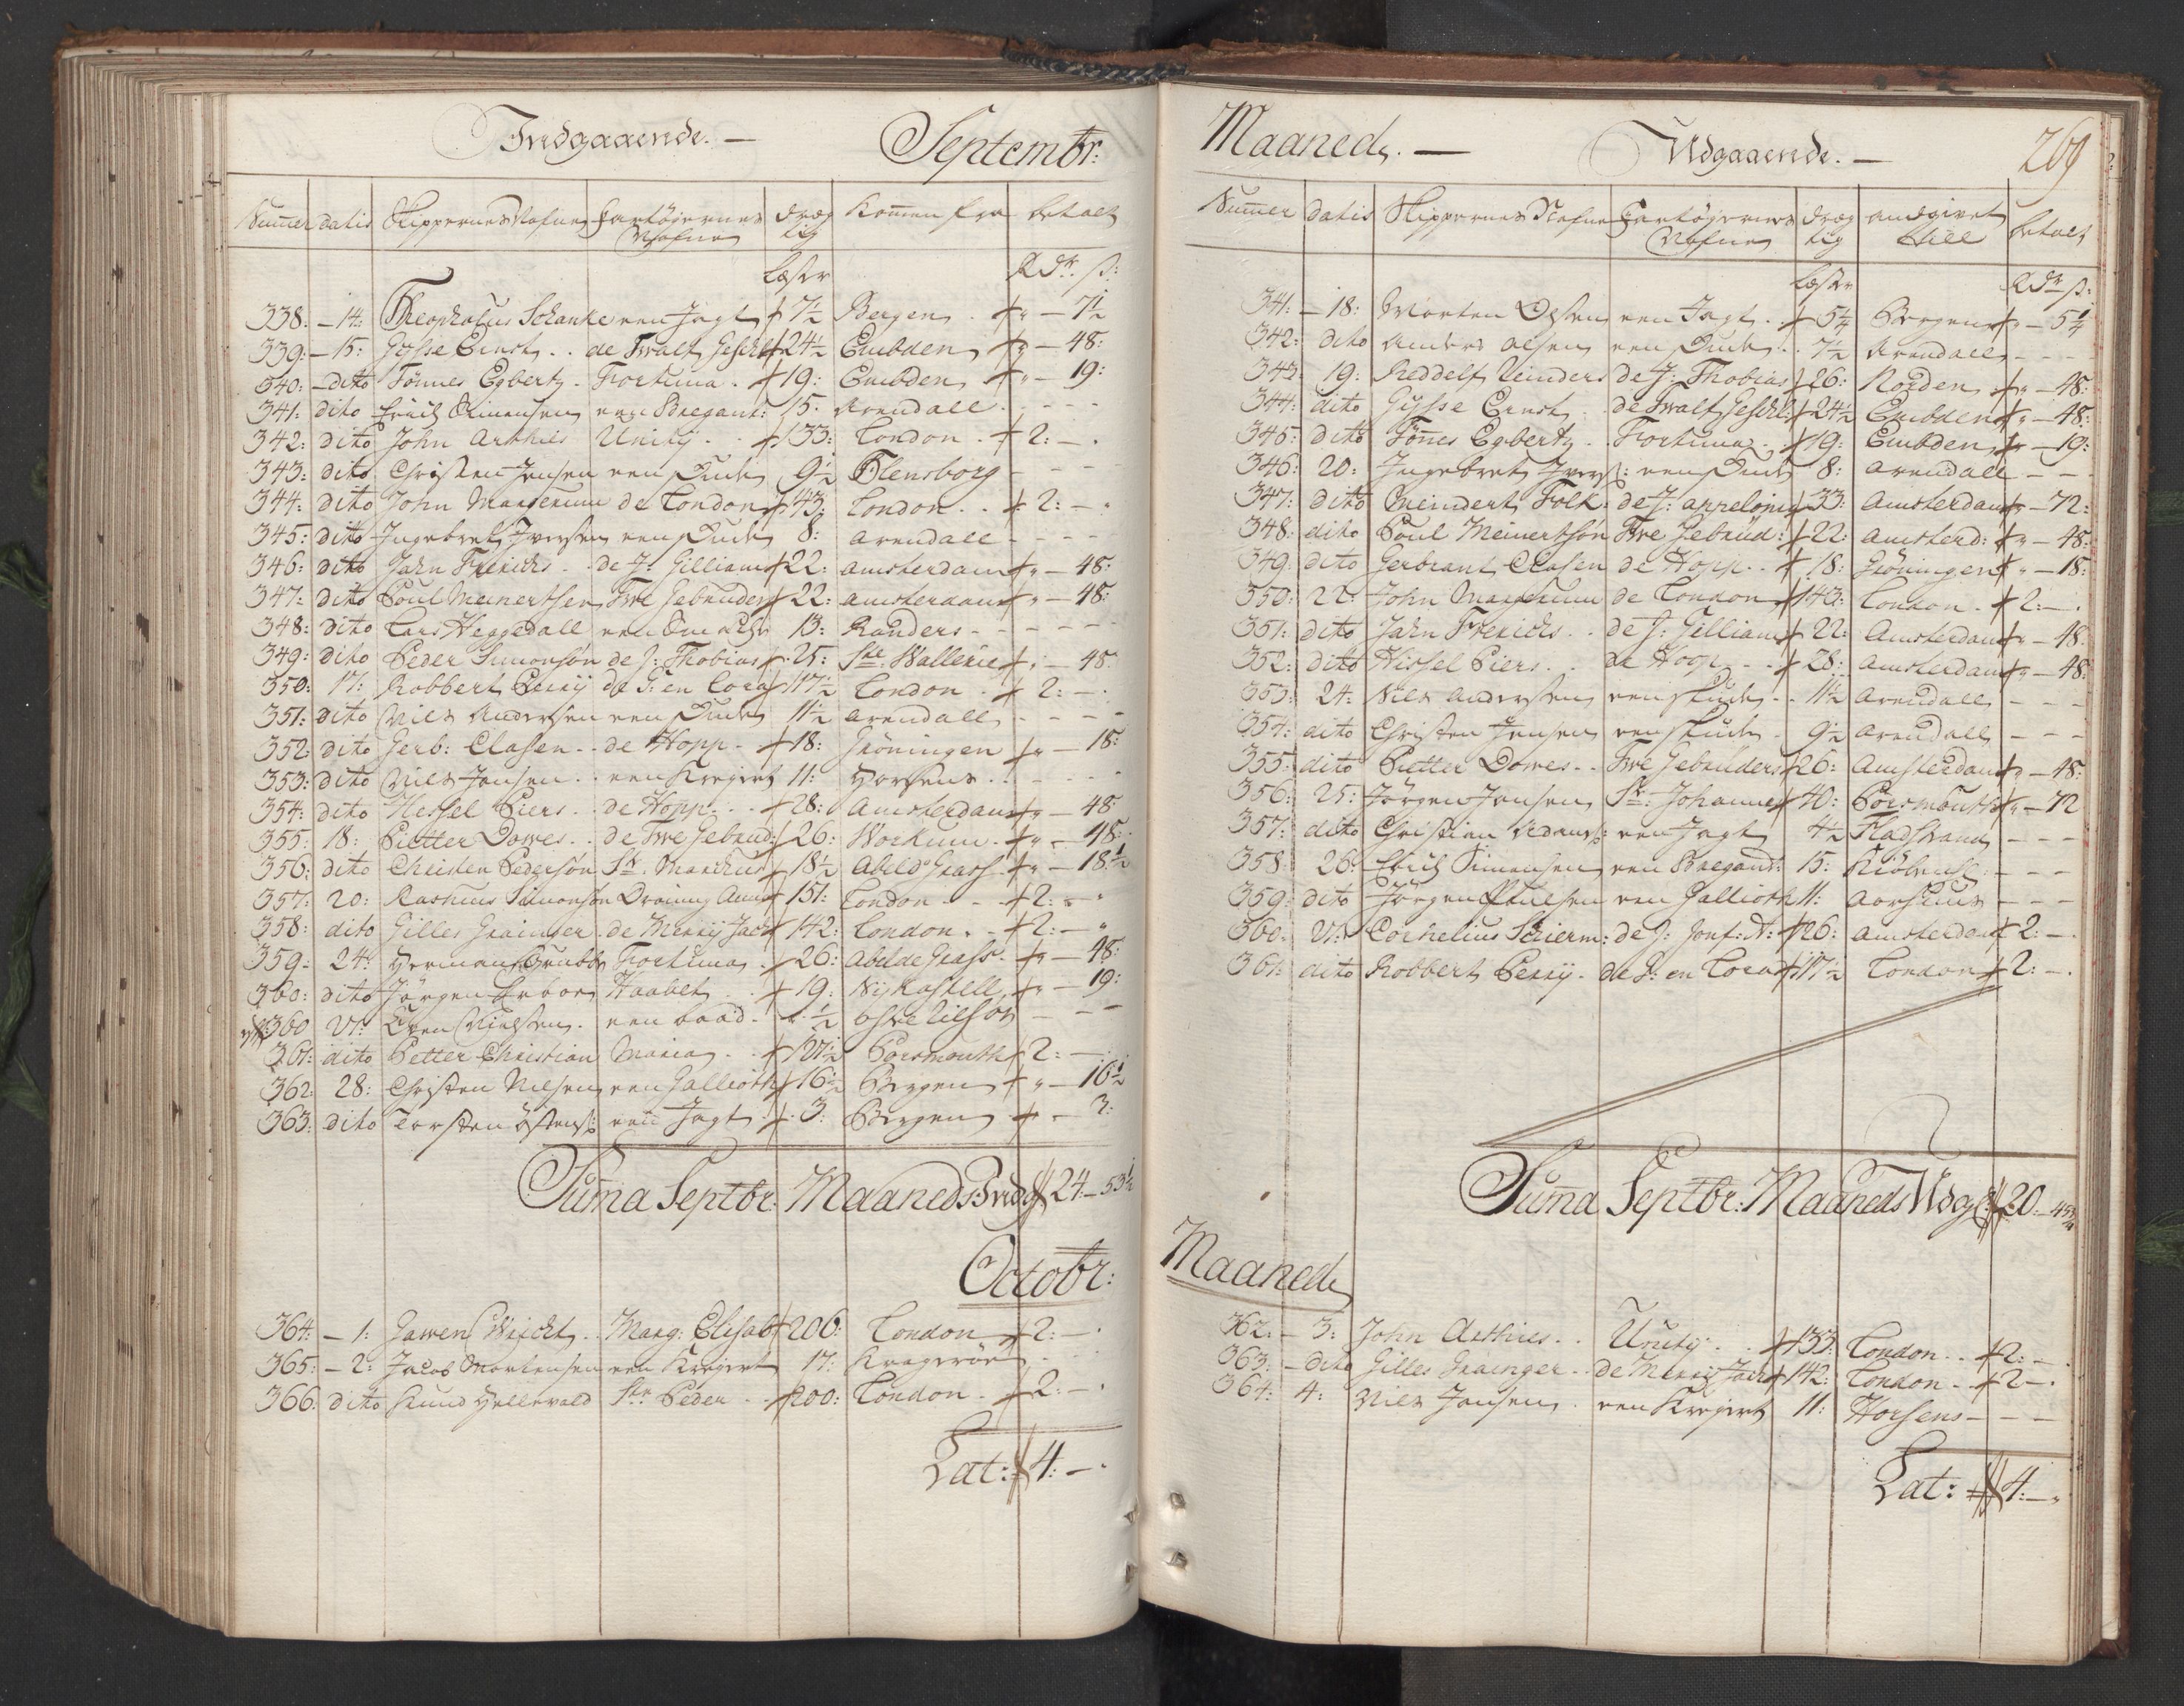 Indgaaende. — Septembr:
Numer datis Skippernes Nafne Fartøyernes Nafne Dræg tig Kommen fra betalt
Læster Rdr. ß:
338: — 14: Theophalus Schanke een Jagt 7½ Bergen " — 7½
339: — 15: Gysse Ernst . . de Swalt Geschl 24½ Embden " — 48:
340: — dito Tönnes Egbertz . Fortuna . 19: Embden " — 19:
341: dito Erich Simensen een Bregant: 15. Arendall . - - -
342: dito John Arthies Unity . . 133: London . 2: — .
343: dito Christen Jensen een Skude 9½ Flensborg - - -
344: dito John Margerum de London 143: London . . 2: — .
345: dito Ingebret Iversen een Skude 8: Arendall - - - -
346: dito Jahn Frerichs . . de J: Gilliam 22: Amsterdam " — 48:
347: dito Poul Meinertsen Twe Gebruders 22: Amsterdam " — 48:
348: dito Lars Heggedall een Smache 13: Randers - - - -
349: dito Peder Simonsøn de J: Thobias 25: Ste: Wallerie " — 48.
350: 17: Robbert Perrij de G: en Cora 117½ London . 2: — .
351: dito Niels Andersen een Skude 11½ Arendall . - - -
352: dito Gerb: Clasen . . de Hopp . 18: Gröningen " — 18:
353: dito Niels Jansen . . een Kregert 11: Horsens . . - - -
354: dito Hessel Piers . . de Hopp . . 28: Amsterdam " — 48:
355: 18: Pietter Dowes . . de Twe Gebrud: 26: Workum . " — 48:
356: dito Christen Pedersøn St: Marckus 18½ Abeld Grass . " — 18½
357: 20: Rasmus Simonsøn Droning Anna 151: London . . 2: — .
358: dito Gilles Grainger . de Merrij Jack 142: London . . 2: — "
359: 24: Herman Grubbe Fortuna . 26: Abelde Grass . " — 48:
360: dito Jörgen Erboe Haabet . 19: Nij Kastell " — 19:
360 27: Even Nielsen . een baad . ½ - - -
361: dito Petter Christian Maria . . 127½ Porsmouth 2: — .
362: 28: Christen Nilsen een Gallioth 16½ Bergen " — 16½
363: dito Torsten Østens: een Jagt . 3: Bergen . — 3:
Suma Septbr: Maaneds Indg: 24: — 53½
Octobr:
364: — 1: Gawen Wischt . . Marg: Elisab 206: London 2: — .
365: — 2: Jacob Mortensen een Kregert 17: Kragerøe . - -
366: dito Knud Hellevald Ste: Peder . . 200: London . 2: — .
Lat: 4: — .
Maaneds. — Udgaaende. — 269
Numer Datis Skippernes Nafne Fartøyernes Nafne Dræg tig Andgivet till betalt
Læster Rdr ß:
341: — 18: Morten Olsen een Jagt . . 5¼ Bergen " — 5¼
342: dito Anders Olsen een Skude . . 7½ Arendall - - - -
343: 19: Reddelf Reinders de J: Thobias 26: Norden " — 48:
344: dito Gysse Ernst . . de Swalt Geschl 24½ Embden " — 48:
345: dito Tönnes Egbertz . . Fortuna . . 19: Embden — 19:
346: 20: Ingebret Ivers: een Skude 8: Arendall - -
347: dito Meindert Folk: de J: Appelonia 33: Amsterdam " — 72:
348: dito Poul Meinertsøn Twe Gebrud: 22: Amsterd: " — 48:
349: dito Gerbrant Clasen de Hopp . . 18: Gröningen " — 18:
350: 22: John Margerum de London 143: London . 2: — .
351: dito Jahn Frerichs . . de J: Gilliam 22: Amsterdam " — 48.
352: dito Hissel Piers . . de Hoop . . 28: Amsterdam " — 48:
353: 24: Niels Andersen een Skude . . 11½ Arendall - - -
354: dito Christen Jensen een Skude . 9½ Arendall - - -
355: dito Pietter Dowes . . Twe Gebruders 26: Amsterdam " — 48:
356: 25: Jörgen Jansen St: Johannes 40: Porsmouth " — 72
357: dito Christian Adams: een Jagt 4½ Fladstrand - - -
358: 26: Erich Simensen een Bregand: 15: Kiöbenh: - - -
359: dito Jörgen Poulsen een Gallioth 11: Aarhuus - - -
360: 27: Cornelius Schierm: de J: Jonf: A: 126: Amsterdam 2: — .
361: dito Robbert Perrij . de G: en Cora 117½ London 2: — .
Suma Septbr: Maaneds Udg: 20: — 45¾
Maaneds
362: — 3: John Arthies . . Unity . . 133: London . . 2: — .
363: — dito Gilles Grainger . . de Merrij Jack 142: London . 2 — .
364: 4: Niels Jansen . een Kregert 11: Horsens - - -
Lat: 4: — "